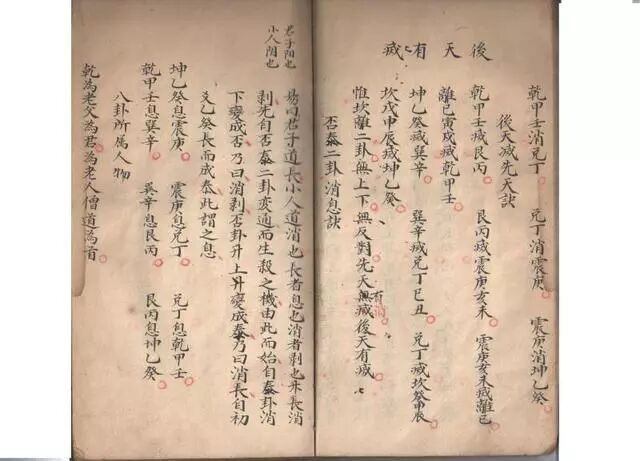 乾甲壬消兌丁 兌丁消震庚 震庚消坤乙癸
後天滅先天訣
乾甲壬滅艮丙 艮丙滅震庚亥未 震庚亥未滅離巳
離巳寅戌滅乾甲壬
坤乙癸滅巽辛 巽辛滅兌丁巳丑 兌丁滅坎癸申辰
坎戊申辰滅坤乙癸
惟坎離二卦無上下無反對先天無滅後天有滅
有消
否泰二卦消息訣
後天有滅
君子陽也
小人阴也
易曰君子道長小人道消也長者息也消者剥也年長消
剥先自否泰二卦变通而生殺之機由此而始自泰卦消
下變成否乃曰消剥否卦升上昇變成泰乃曰消長自初
爻乙癸長而成泰此謂之息
坤乙癸息震庚 震庚息兌丁 兌丁息乾甲壬
乾甲壬息巽辛 巽辛息艮丙 艮丙息坤乙癸
八卦所属人物
乾為老父為君為老人僧道為首